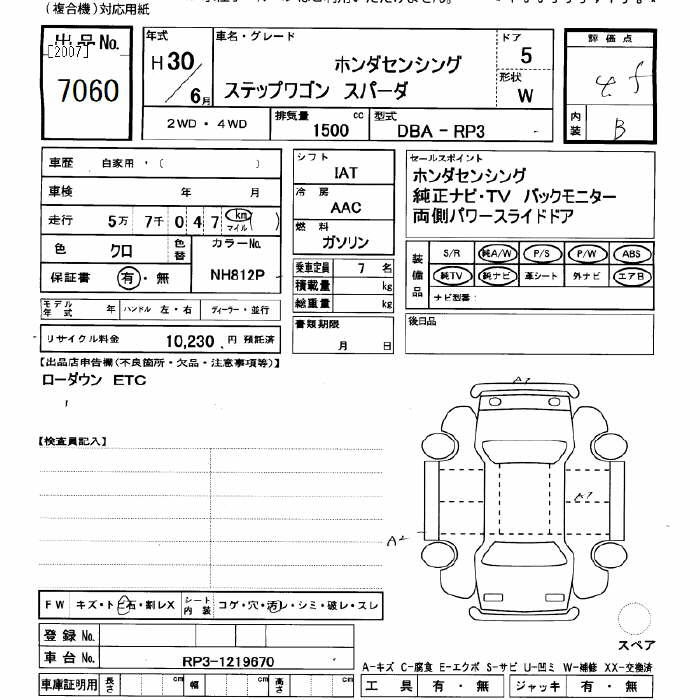 (複合機)対応用紙
出品No.
[2007]
7060
年式
H30/6月
車名・グレード
ホンダセンシング
ステップワゴン スパーダ
ドア
5
形状
W
評価点
内装 B
2WD・4WD
排気量 1500 cc
型式 DBA-RP3
車歴 自家用・( )
車検 年 月
走行 5万 7千 0 4 7 km マイル ( )
色 クロ
色替
カラーNo.
NH812P
保証書 有・無
シフト
IAT
冷房
AAC
燃料
ガソリン
乗車定員 7 名
積載量 kg
総重量 kg
セールスポイント
ホンダセンシング
純正ナビ・TV バックモニター
両側パワースライドドア
装備品
S/R 純A/W P/S P/W ABS
純TV 純ナビ 革シート 外ナビ エアB
ナビ型番:
モデル年式 年 ハンドル 左・右 ディーラー・並行
リサイクル料金 10,230 円 預託済
書類期限
月 日
後日品
【出品店申告欄(不良箇所・欠品・注意事項等)】
ローダウン ETC
【検査員記入】
A1
A2
FW キズ・トビ石・割レX
シート内装 コゲ・穴・汚レ・シミ・破レ・スレ
登録No.
車台No. RP3-1219670
車庫証明用 長さ cm 幅 cm 高さ cm
スペア
A-キズ C-腐食 E-エクボ S-サビ U-凹ミ W-補修 XX-交換済
工具 有・無 ジャッキ 有・無